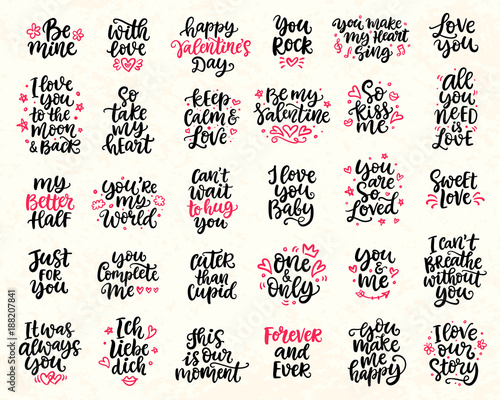 Be
mine
with
love
happy
Valentine's
Day
You
Rock
You make
my Heart
Sing
Love
you
I love
you
to the
moon
& Back
So
take
my
heart
keep
calm &
Love
Be my
Valentine
So
kiss
me
all
you
need
is Love
my
Better
Half
you're
my
World
can't
wait
to hug
you
I love
you
Baby
you
Are
So
Loved
Sweet
Love
Just
for
you
you
complete
me
cuter
than
cupid
one
& only
you
& me
I can't
Breathe
without
you
It was
always
you
Ich
liebe
dich
this
is our
moment
Forever
and
Ever
you
make
me
happy
I love
our
Story
Adobe Stock | #188207841